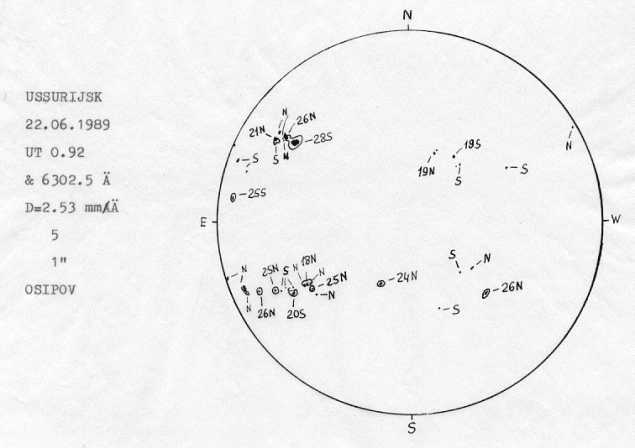 N
USSURIJSK
22.06.1989
UT 0.92
& 6302.5 Å
D=2.53 mm/Å
5
1"
OSIPOV
N
21N
26N
28S
S
N
S
25S
19S
19N
S
S
N
E
W
N
25N
S
N
18N
N
25N
N
N
26N
20S
24N
S
N
26N
S
S